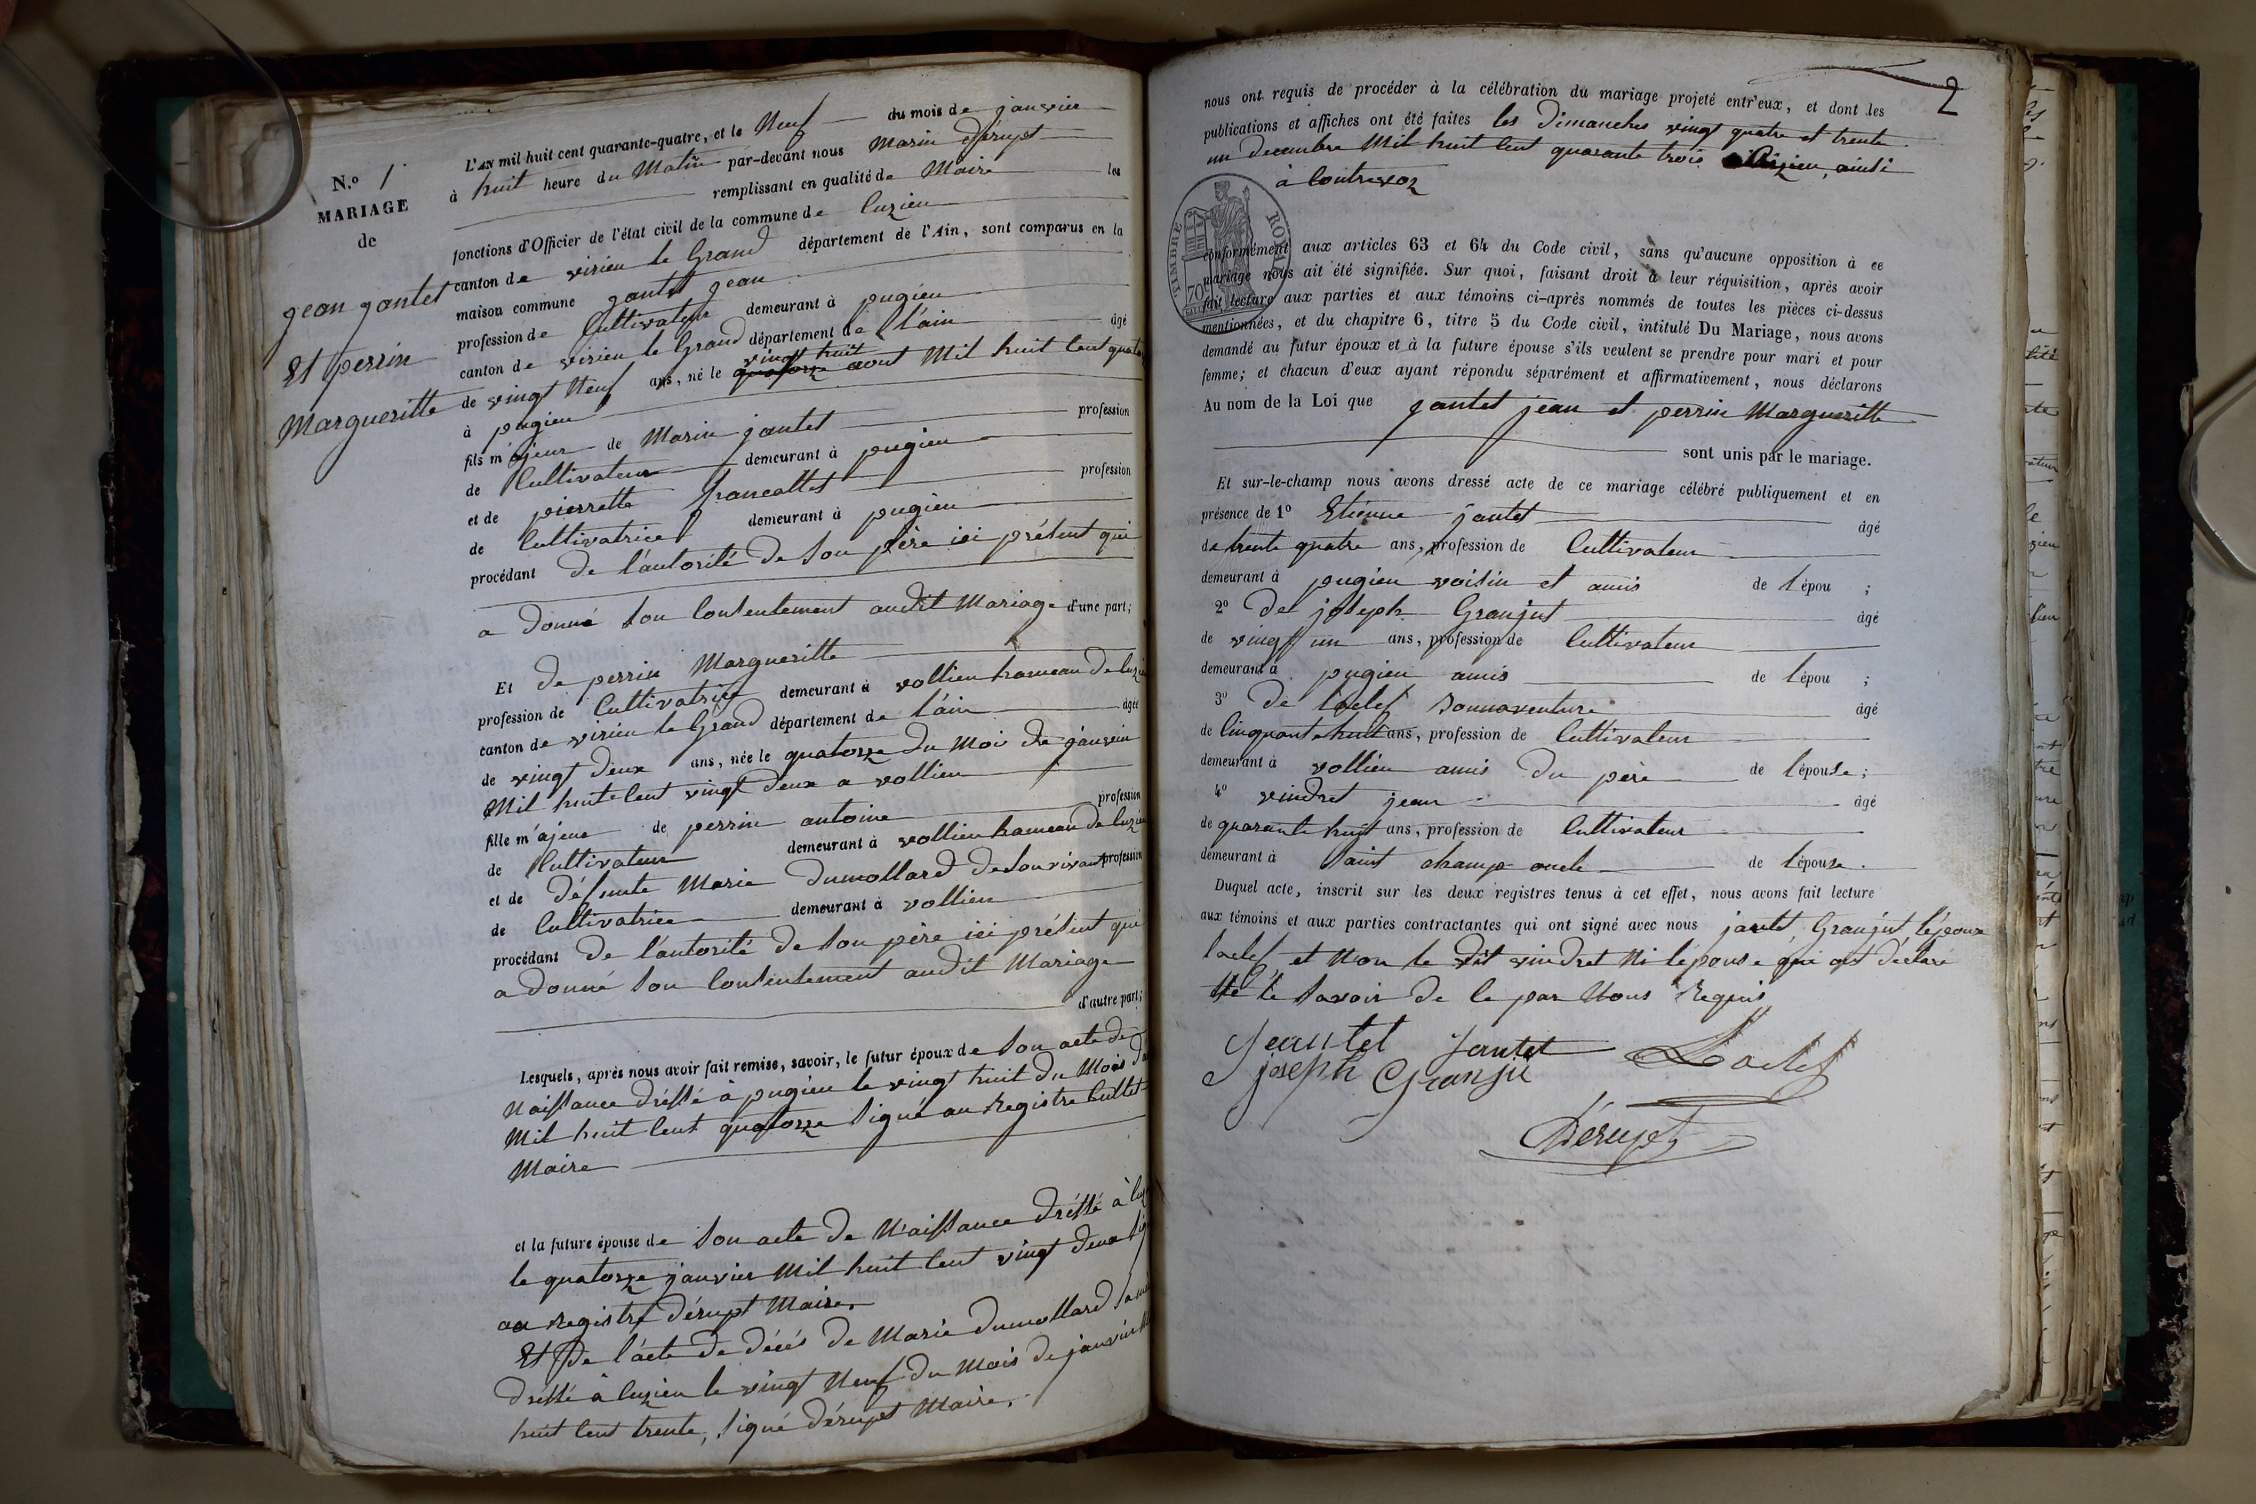 N.º 1
MARIAGE
de
jean jantet
Et perrin
Margueritte
L'AN mil huit cent quarante-quatre, et le Neuf du mois de janvier
à huit heure du Matin par-devant nous Marin Dérupt
remplissant en qualité de Maire les
fonctions d'Officier de l'état civil de la commune de Cuzieu
canton de virieu le Grand département de l'Ain, sont comparus en la
maison commune jantet jean
profession de Cultivateur demeurant à pugieu
canton de virieu le Grand département de l'ain âgé
de vingt Neuf ans, né le vingt huit quatorze aout Mil huit Cent quatorze
à pugieu
fils majeur de Marin jantet profession
de Cultivateur demeurant à pugieu
et de pierrette francallet profession
de Cultivatrice demeurant à pugieu
procédant de l'autorité de Son père ici présent qui
a donné Son Consentement audit Mariage d'une part;
Et de perrin Margueritte
profession de Cultivatrice demeurant à vollien hameau de Cuzieu
canton de virieu le Grand département de l'ain âgée
de vingt deux ans, née le quatorze du Mois de janvier
Mil huit Cent vingt deux a vollien
fille majeue de perrin antoine profession
de Cultivateur demeurant à vollien hameau de Cuzieu
et de défunte Marie dumollard de Son vivant profession
de Cultivatrice demeurant à vollien
procédant de l'autorité de Son père ici présent qui
a donné Son Consentement audit Mariage
d'autre part;
Lesquels, après nous avoir fait remise, savoir, le futur époux de Son acte de
Naissance dréssé à pugieu le vingt huit du Mois
Mil huit Cent quatorze Signé au Registre Cullet
Maire
et la future épouse de Son acte de Naissance dréssé à
le quatorze janvier Mil huit Cent vingt deux
au Registre dérupt Maire.
Et De l'acte de décés de Marie dumollard
dréssé à Cuzieu le vingt Neuf du Mois de janvier
huit Cent trente, Signé dérupt Maire.
2
nous ont requis de procéder à la célébration du mariage projeté entr'eux, et dont les
publications et affiches ont été faites les Dimanches vingt quatre et trente
un Decembre Mil huit Cent quarante trois a Cuzieu, ainsi
à Contrevoz
TIMBRE ROYAL
70
conformément aux articles 63 et 64 du Code civil, sans qu'aucune opposition à ce
mariage nous ait été signifiée. Sur quoi, faisant droit à leur réquisition, après avoir
fait lecture aux parties et aux témoins ci-après nommés de toutes les pièces ci-dessus
mentionnées, et du chapitre 6, titre 5 du Code civil, intitulé Du Mariage, nous avons
demandé au futur époux et à la future épouse s'ils veulent se prendre pour mari et pour
femme; et chacun d'eux ayant répondu séparément et affirmativement, nous déclarons
Au nom de la Loi que jantet jean et perrin Margueritte
sont unis par le mariage.
Et sur-le-champ nous avons dressé acte de ce mariage célébré publiquement et en
présence de 1º Etienne jantet âgé
de trente quatre ans, profession de Cultivateur
demeurant à pugieu voisin et amis de l'épou ;
2º De joseph Granjut âgé
de vingt un ans, profession de Cultivateur
demeurant à pugieu amis de l'épou ;
3º De Loclef Bonnaventure âgé
de Cinquante huit ans, profession de Cultivateur
demeurant à vollien amis du père de l'épouse;
4º vindret jean âgé
de quarante huit ans, profession de Cultivateur
demeurant à Saint champ oncle de l'épouse.
Duquel acte, inscrit sur les deux registres tenus à cet effet, nous avons fait lecture
aux témoins et aux parties contractantes qui ont signé avec nous jantet, Granjut l'époux
Loclef et Non le dit vindret Ni l'épouse qui ont déclaré
Ne le Savoir de le par Nous Requis
Jeantet Jantet Loclef
joseph Granju
Dérupt